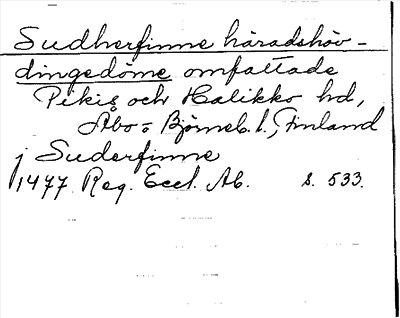 Sudherfinne häradshöv-
dingedöme omfattade
Pikis och Halikko hd,
Åbo- Björneb. l., Finland
j Suderfinne
1477 Reg. Eccl. Ab. s. 533.